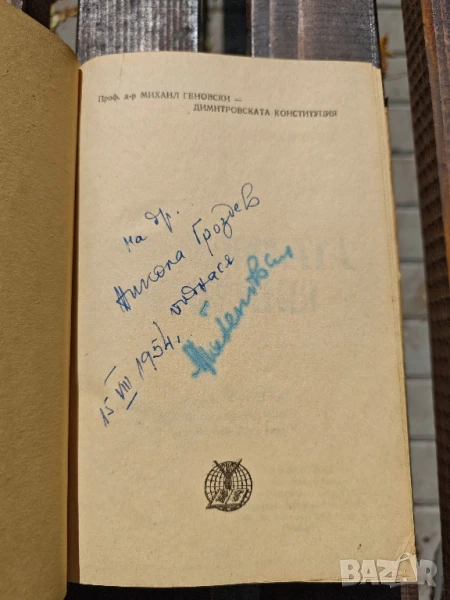 Проф. д-р МИХАИЛ ГЕНОВСКИ —
ДИМИТРОВСКАТА КОНСТИТУЦИЯ
на др.
Никола Гроздев
15 VIII 1954.
BAZAR